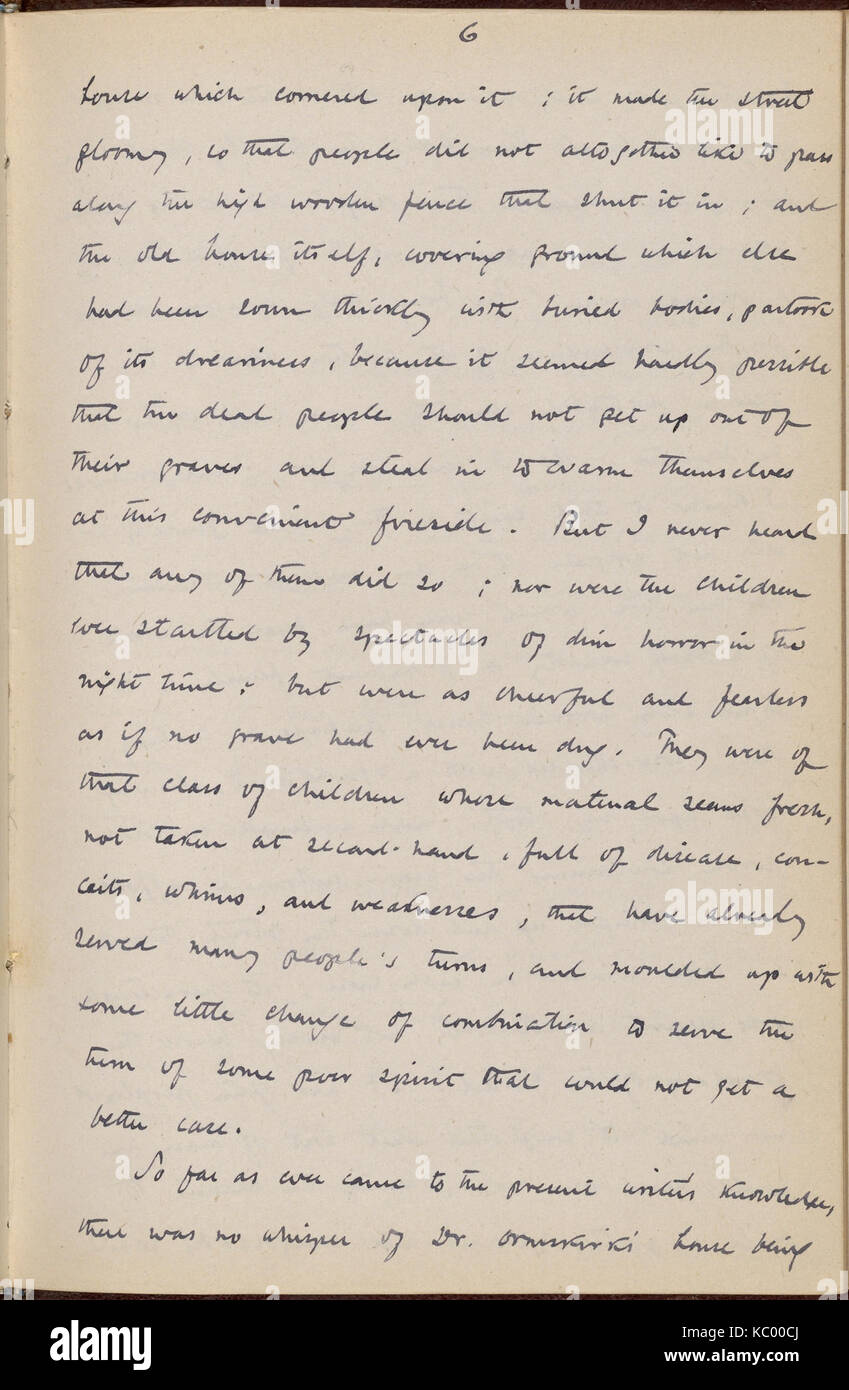 6
house which cornered upon it ; it made the street
gloomy, so that people did not altogether like to pass
along the high wooden fence that shut it in ; and
the old house itself, covering ground which else
had been sown thickly with buried bodies, partook
of its dreariness, because it seemed hardly possible
that the dead people should not get up out of
their graves and steal in to warm themselves
at this convenient fireside. But I never heard
that any of them did so ; nor were the children
ever startled by spectacles of dim horror in the
night time ; but were as cheerful and fearless
as if no grave had ever been dug. They were of
that class of children whose material seems fresh,
not taken at second-hand, full of disease, con-
ceits, whims, and weaknesses, that have already
served many people's turns, and moulded up with
some little change of combination to serve the
turn of some poor spirit that could not get a
better case.
So far as ever came to the present writer's knowledge,
there was no whisper of Dr. Ormskirk's house being
alamy
a
alamy stock photo
Image ID: KC00CJ
www.alamy.com